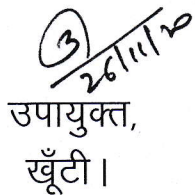 3
26/11/20
उपायुक्त,
खूँटी।